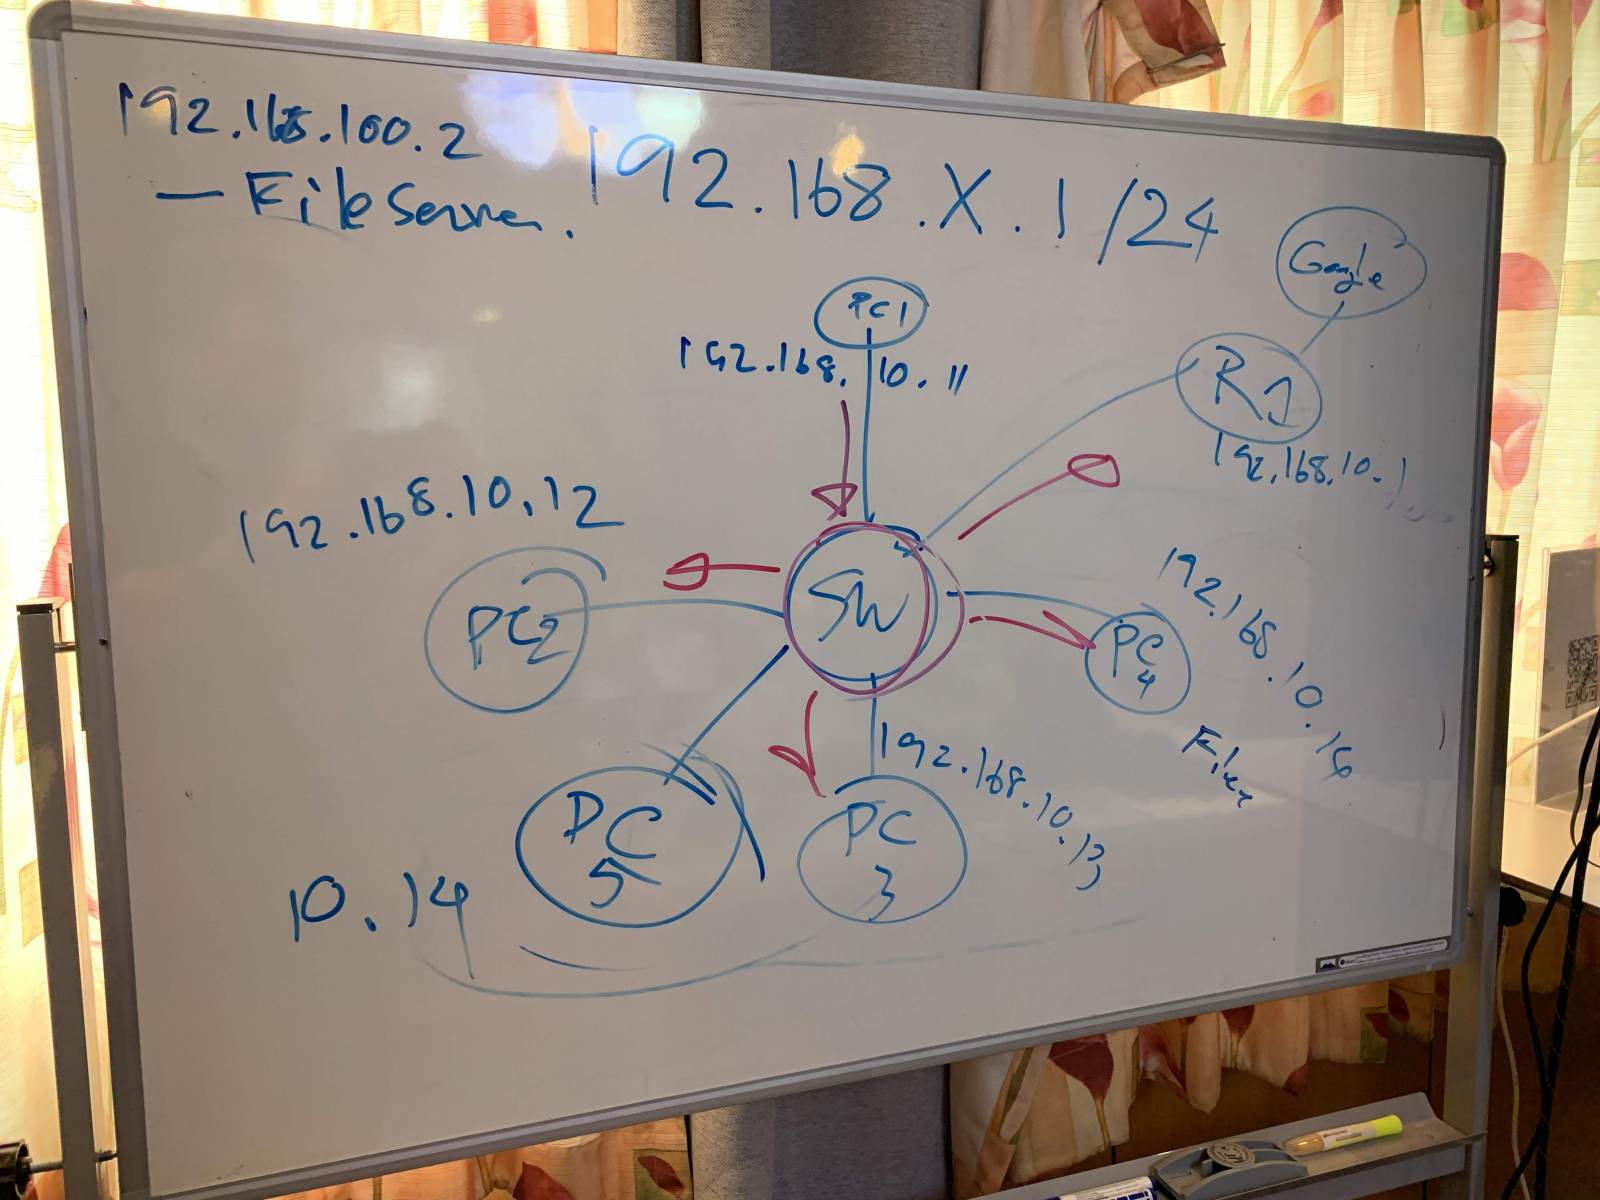 192.168.100.2
— File Server.
192.168.X.1/24
Google
PC1
192.168.10.11
R1
192.168.10.1
192.168.10.12
PC2
SW
PC4
192.168.10.15
File
192.168.10.13
PC
5
PC
3
10.14